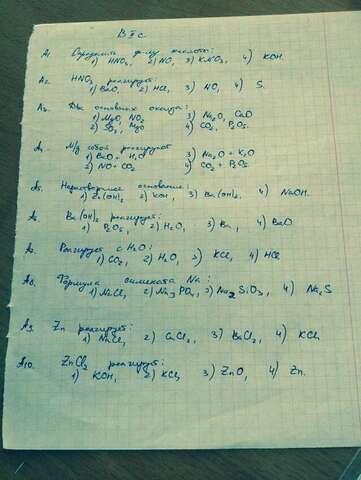 В II с
А1. Определить ф-лу кислоты:
1) HNO₃, 2) NO, 3) KNO₃, 4) KOH.
А2. HNO₃ реагирует:
1) BaO, 2) HCl, 3) NO, 4) S.
А3. Два основных оксида:
1) MgO, NO₂ 3) Na₂O, CaO
2) SO₃, MgO 4) CO₂, P₂O₅.
А4. М/д собой реагируют
1) BaO + H₂O 3) Na₂O + K₂O
2) NO + CO₂ 4) CO₂ + P₂O₅.
А5. Нерастворимое основание:
1) Zn(OH)₂ 2) KOH, 3) Ba(OH)₂, 4) NaOH.
А6. Ba(OH)₂ реагирует:
1) P₂O₅, 2) H₂O, 3) Ba, 4) BaO
А7. Реагирует с H₂O:
1) CO₂, 2) H₂O, 3) KCl, 4) HCl
А8. Формула силиката Na:
1) NaCl, 2) Na₃PO₄, 3) Na₂SiO₃, 4) Na₂S
А9. Zn реагирует:
1) NaCl, 2) CuCl₂, 3) BaCl₂, 4) KCl
А10. ZnCl₂ реагирует:
1) KOH, 2) KCl, 3) ZnO, 4) Zn.